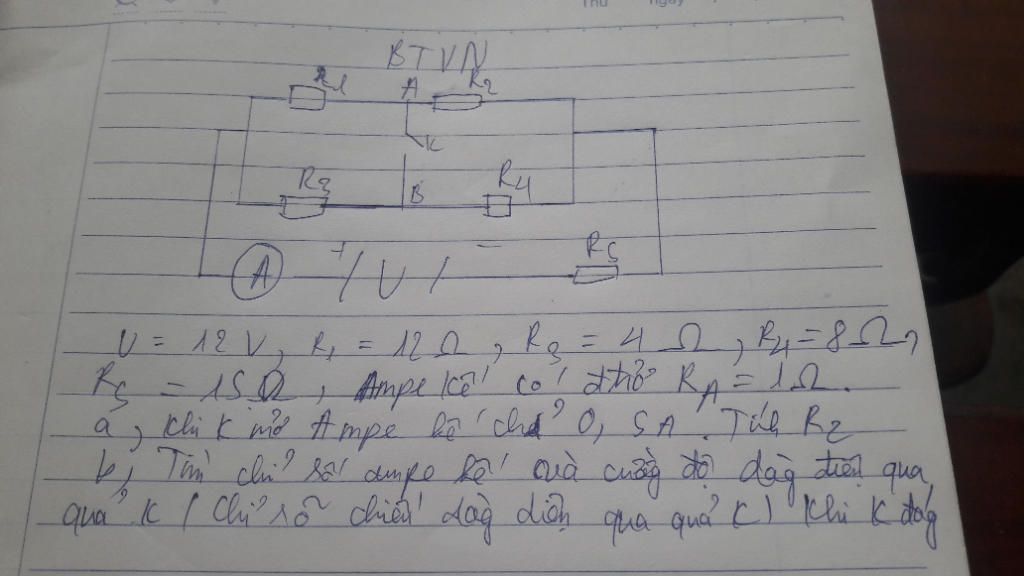 Thứ ngày
BTVN
R1 A R2
K
R3 B R4
+ - R5
A U
U = 12V, R1 = 12Ω, R3 = 4Ω, R4 = 8Ω,
R5 = 15Ω, Ampe kế có đtrở RA = 1Ω.
a, Khi K mở Ampe kế chỉ 0,5A. Tính R2
b, Tìm chỉ số ampe kế và cường độ dòng điện qua
quả K (chỉ rõ chiều dòng điện qua quả K) khi K đóng